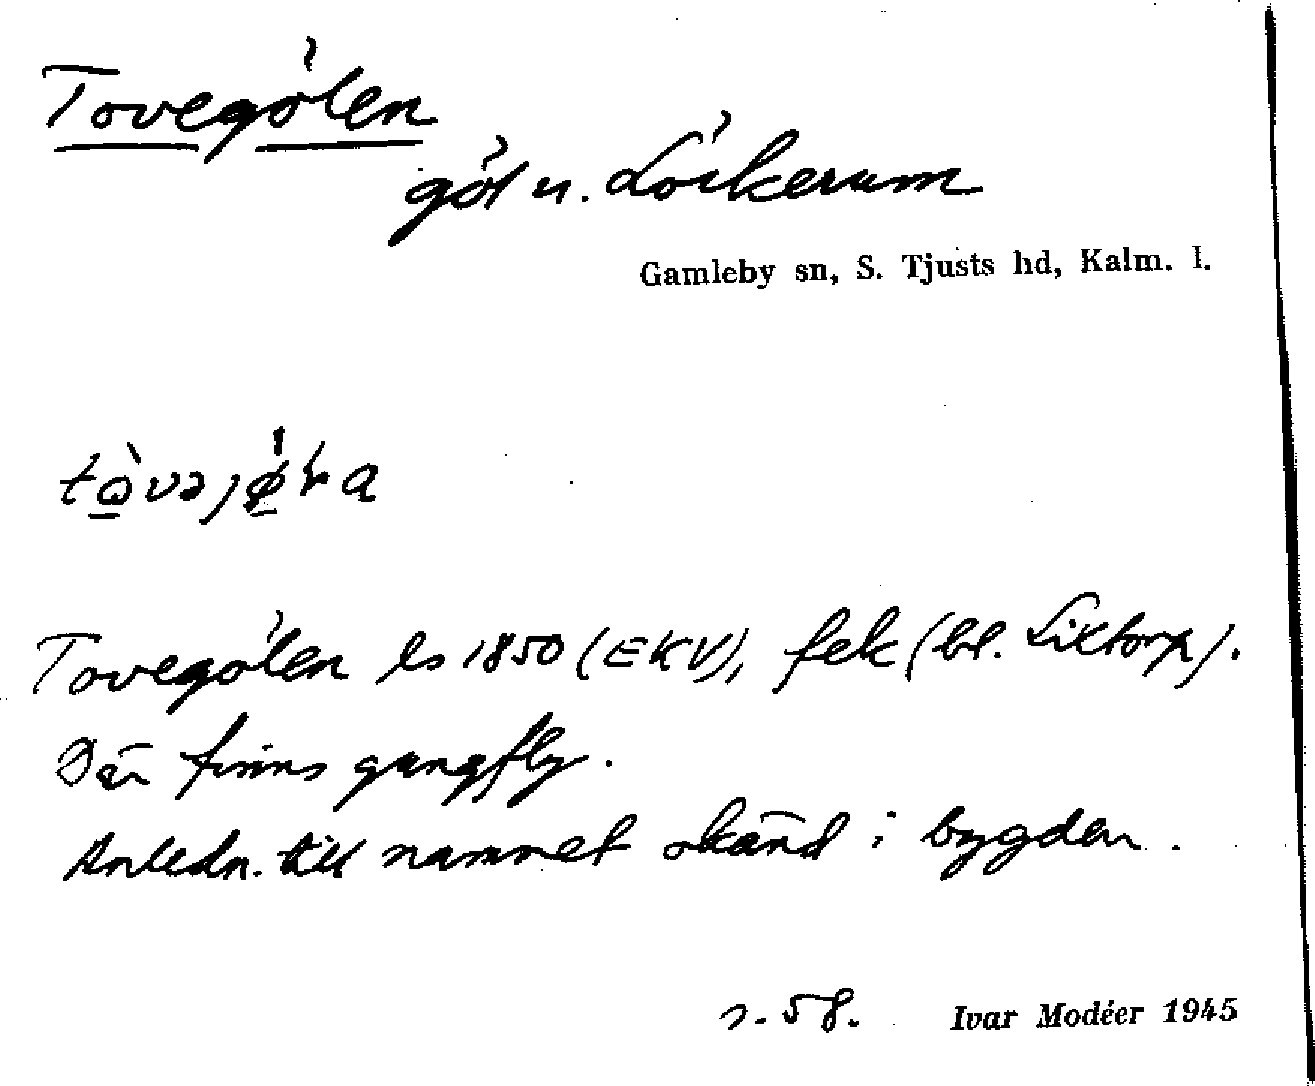 Tovegölen
göl u. Löckerum
Gamleby sn, S. Tjusts hd, Kalm. l.
Tovegölen ls 1850 (EKV), fek (bl. Liktorp).
Där finns gungfly.
Anledn. till namnet okänd i bygden.
s. 58. Ivar Modéer 1945